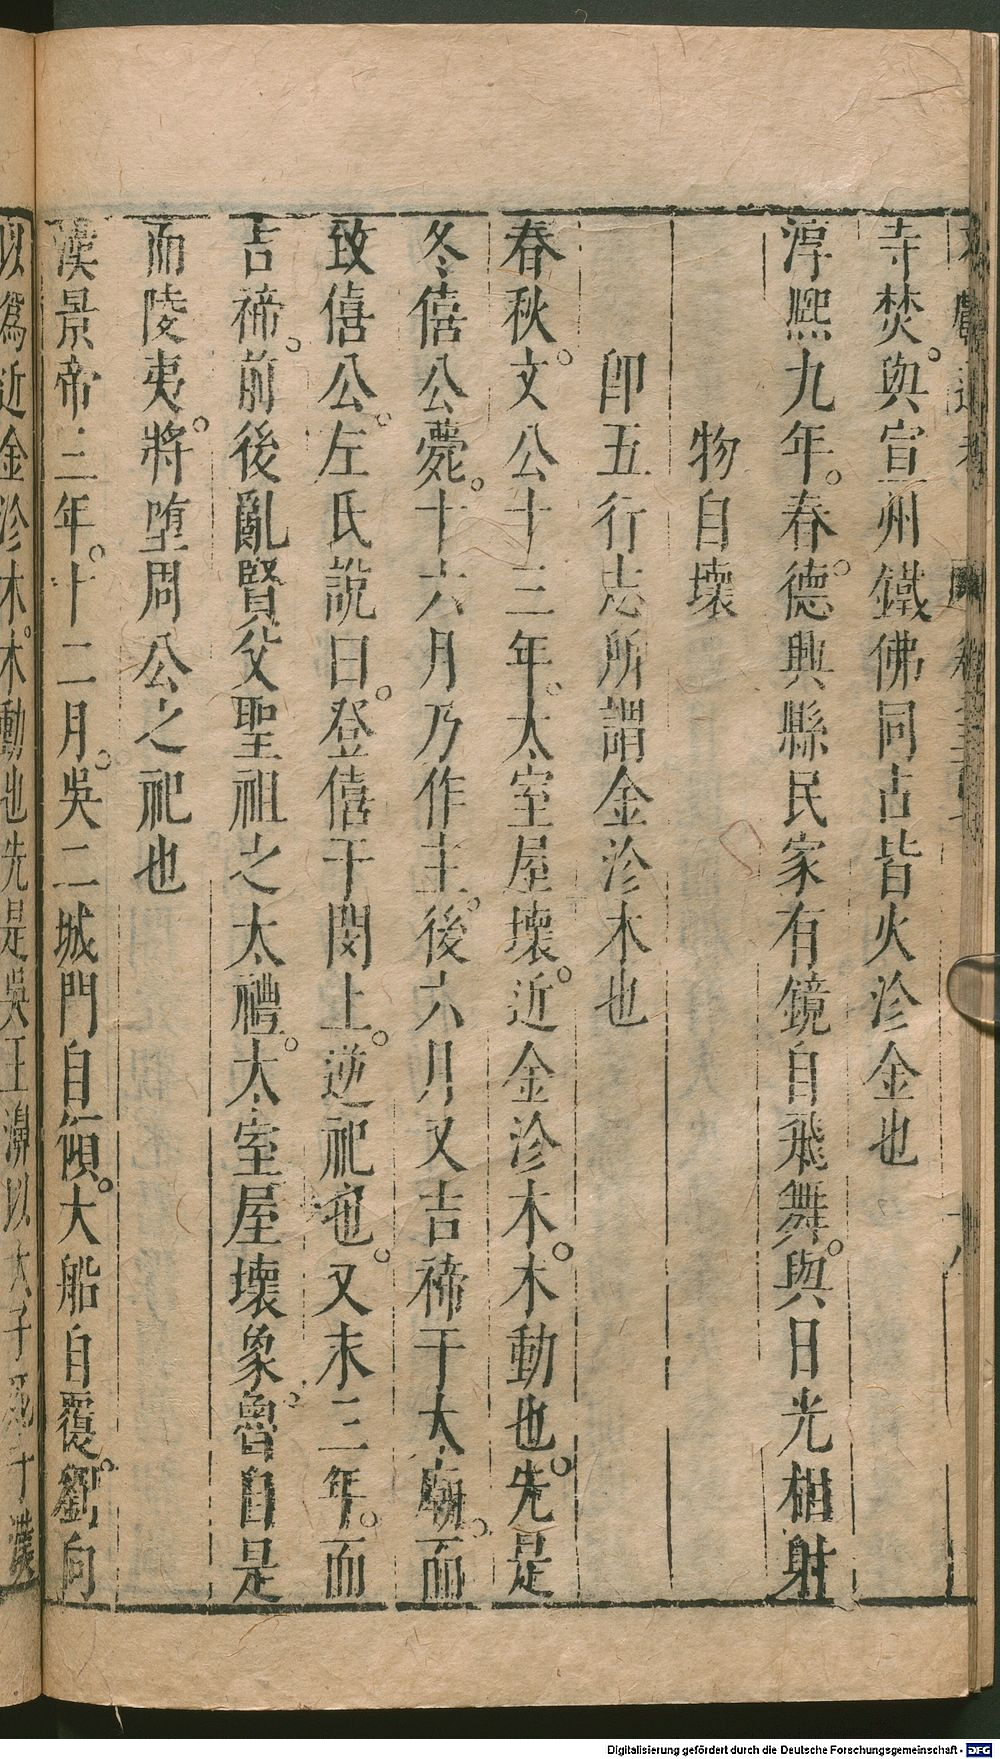 寺焚與宣州鐵佛同占皆火沴金也
淳熙九年春德興縣民家有鏡自飛舞與日光相射
物自壞
卽五行志所謂金沴木也
春秋文公十三年太室屋壞近金沴木木動也先是
冬僖公薨十六月乃作主後六月又吉禘于太廟而
致僖公左氏說曰登僖于閔上逆祀也又未三年而
吉禘前後亂賢父聖祖之太禮太室屋壞象魯自是
而陵夷將墮周公之祀也
漢景帝三年十二月吳二城門自傾大船自覆劉向
以爲近金沴木木動也先是吳王濞以太子死于漢
Digitalisierung gefördert durch die Deutsche Forschungsgemeinschaft - DFG